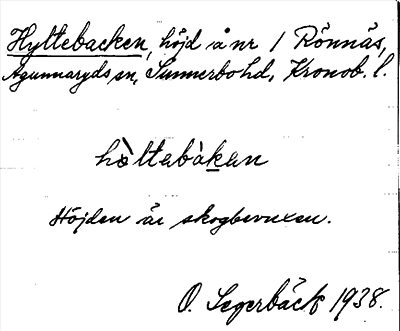 Hyltebacken, höjd å nr 1 Rönnäs,
Agunnaryds sn, Sunnerbo hd, Kronob. l.
hò̀ltabàkan
Höjden är skogbevuxen.
O. Segerbäck 1938.